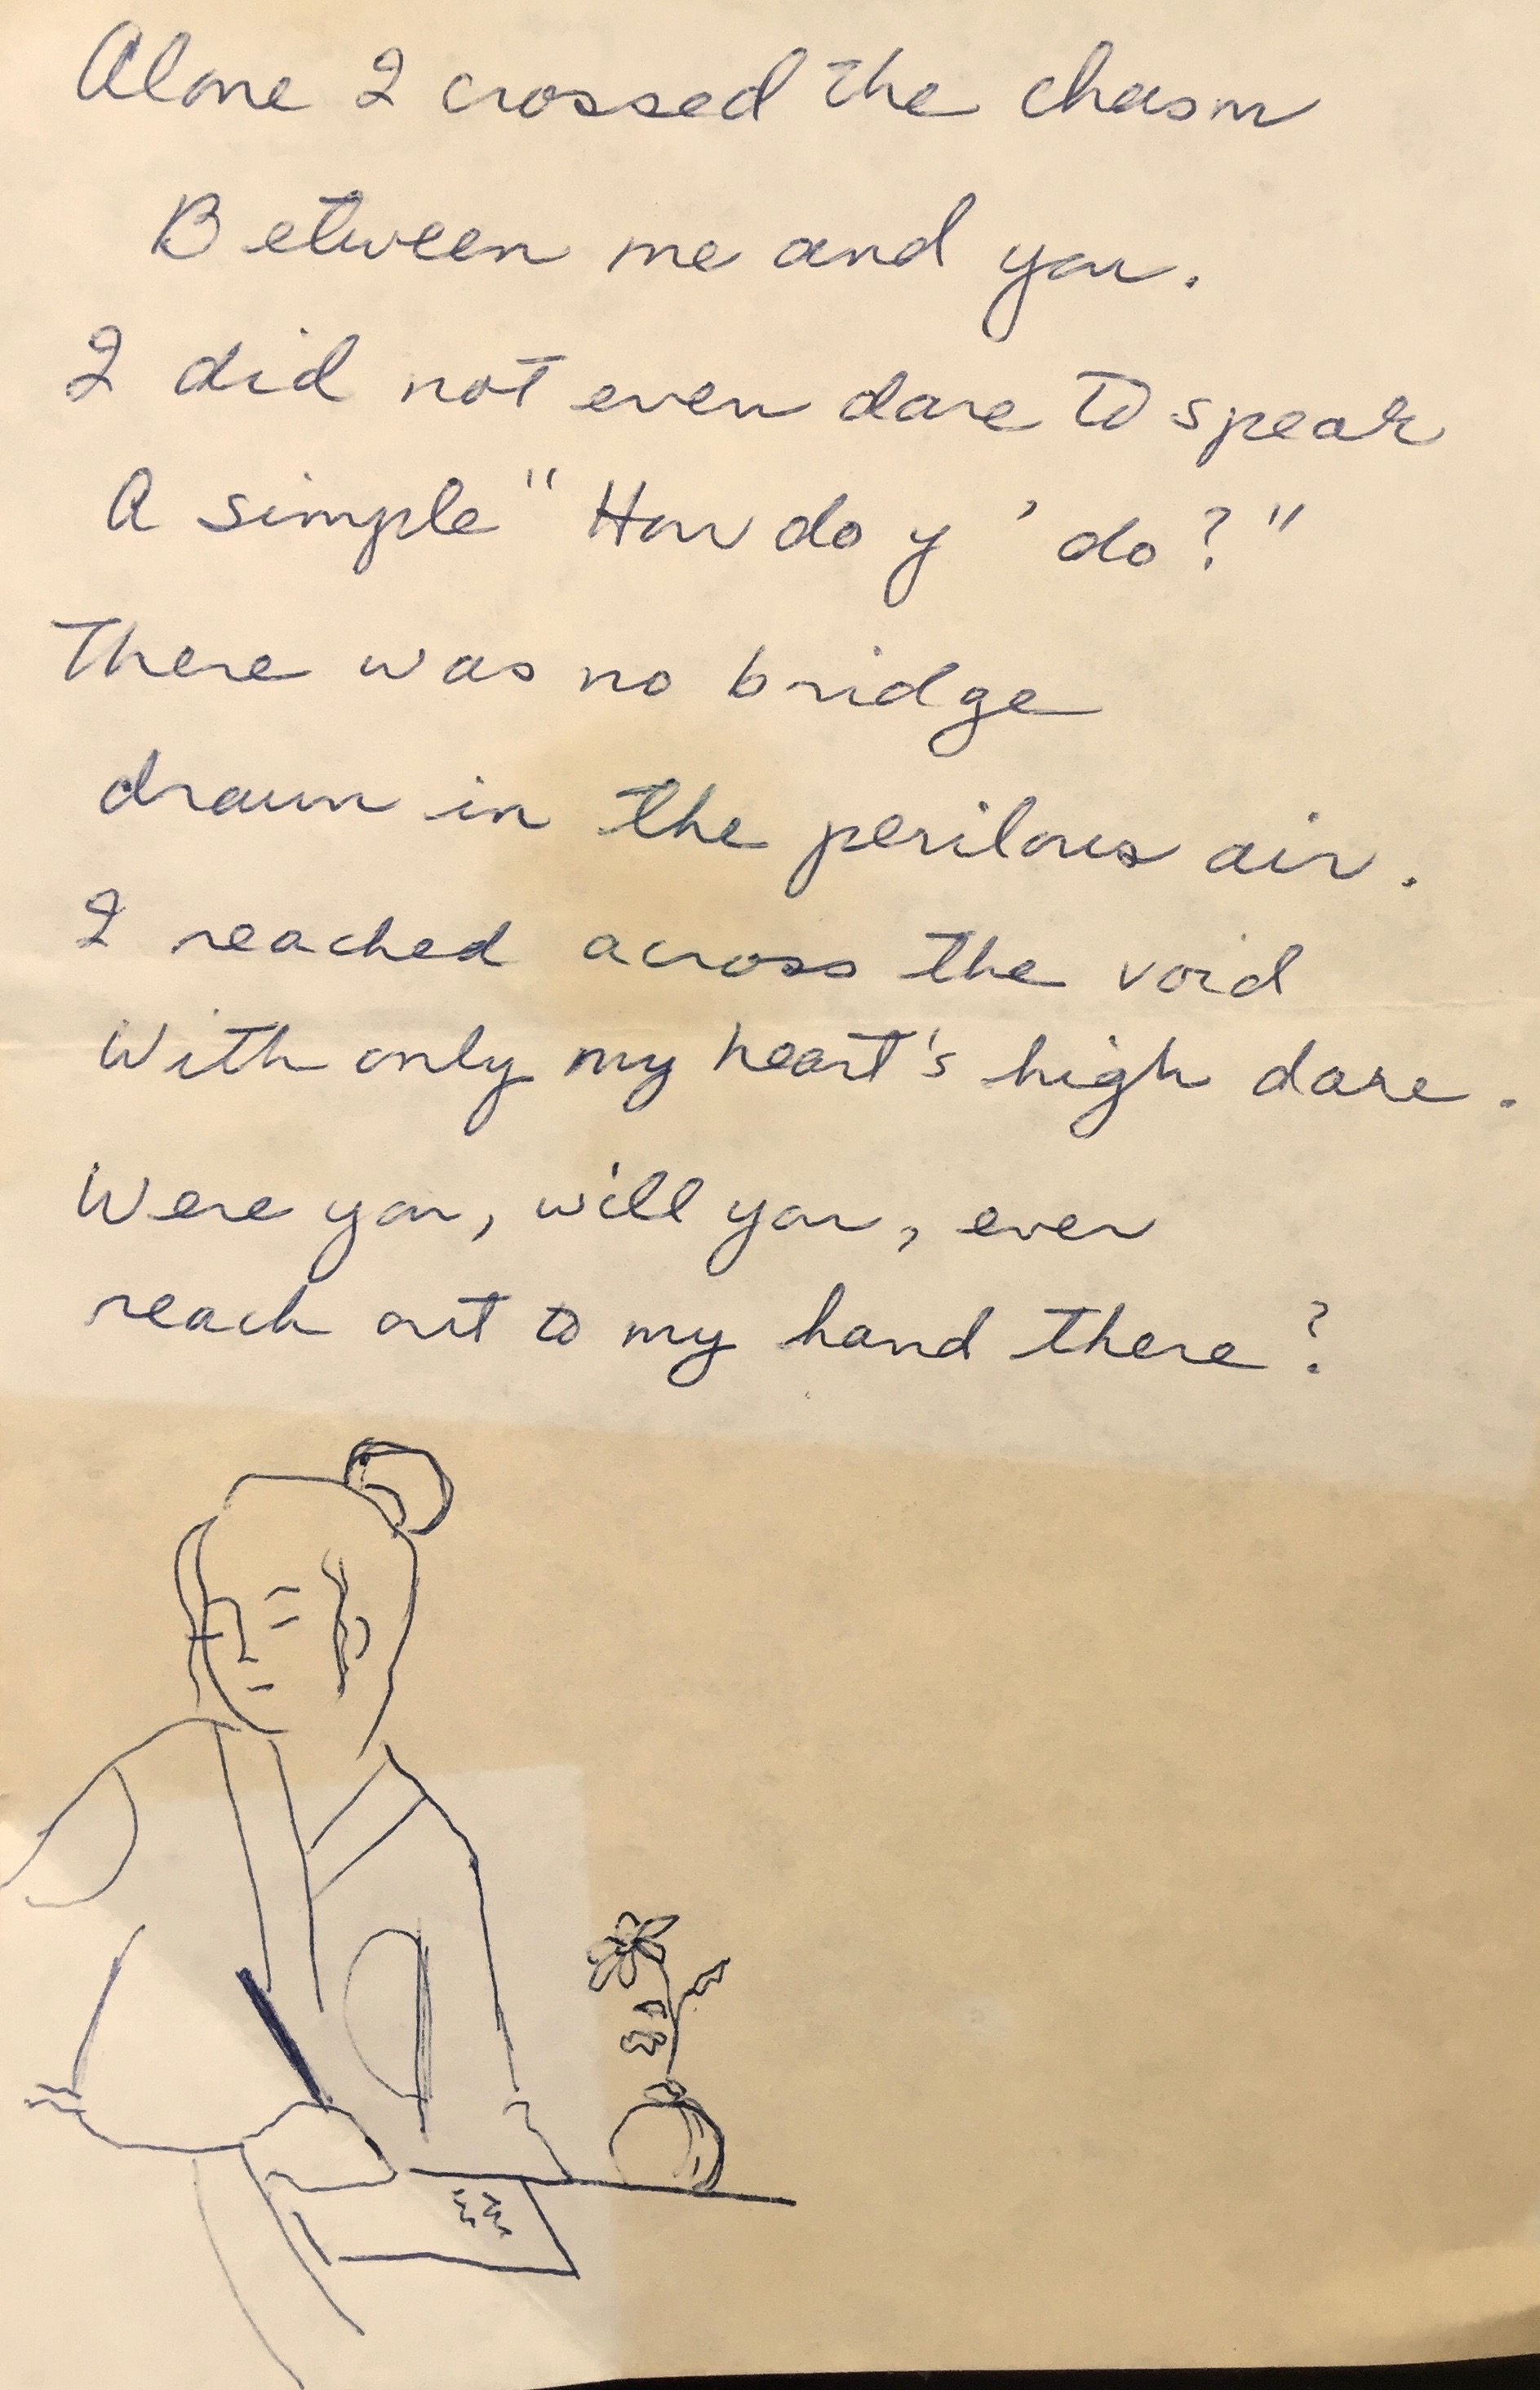 Alone I crossed the chasm
Between me and you.
I did not even dare to speak
A simple "How do y'do?"
There was no bridge
drawn in the perilous air.
I reached across the void
With only my heart's high dare.
Were you, will you, ever
reach out to my hand there?